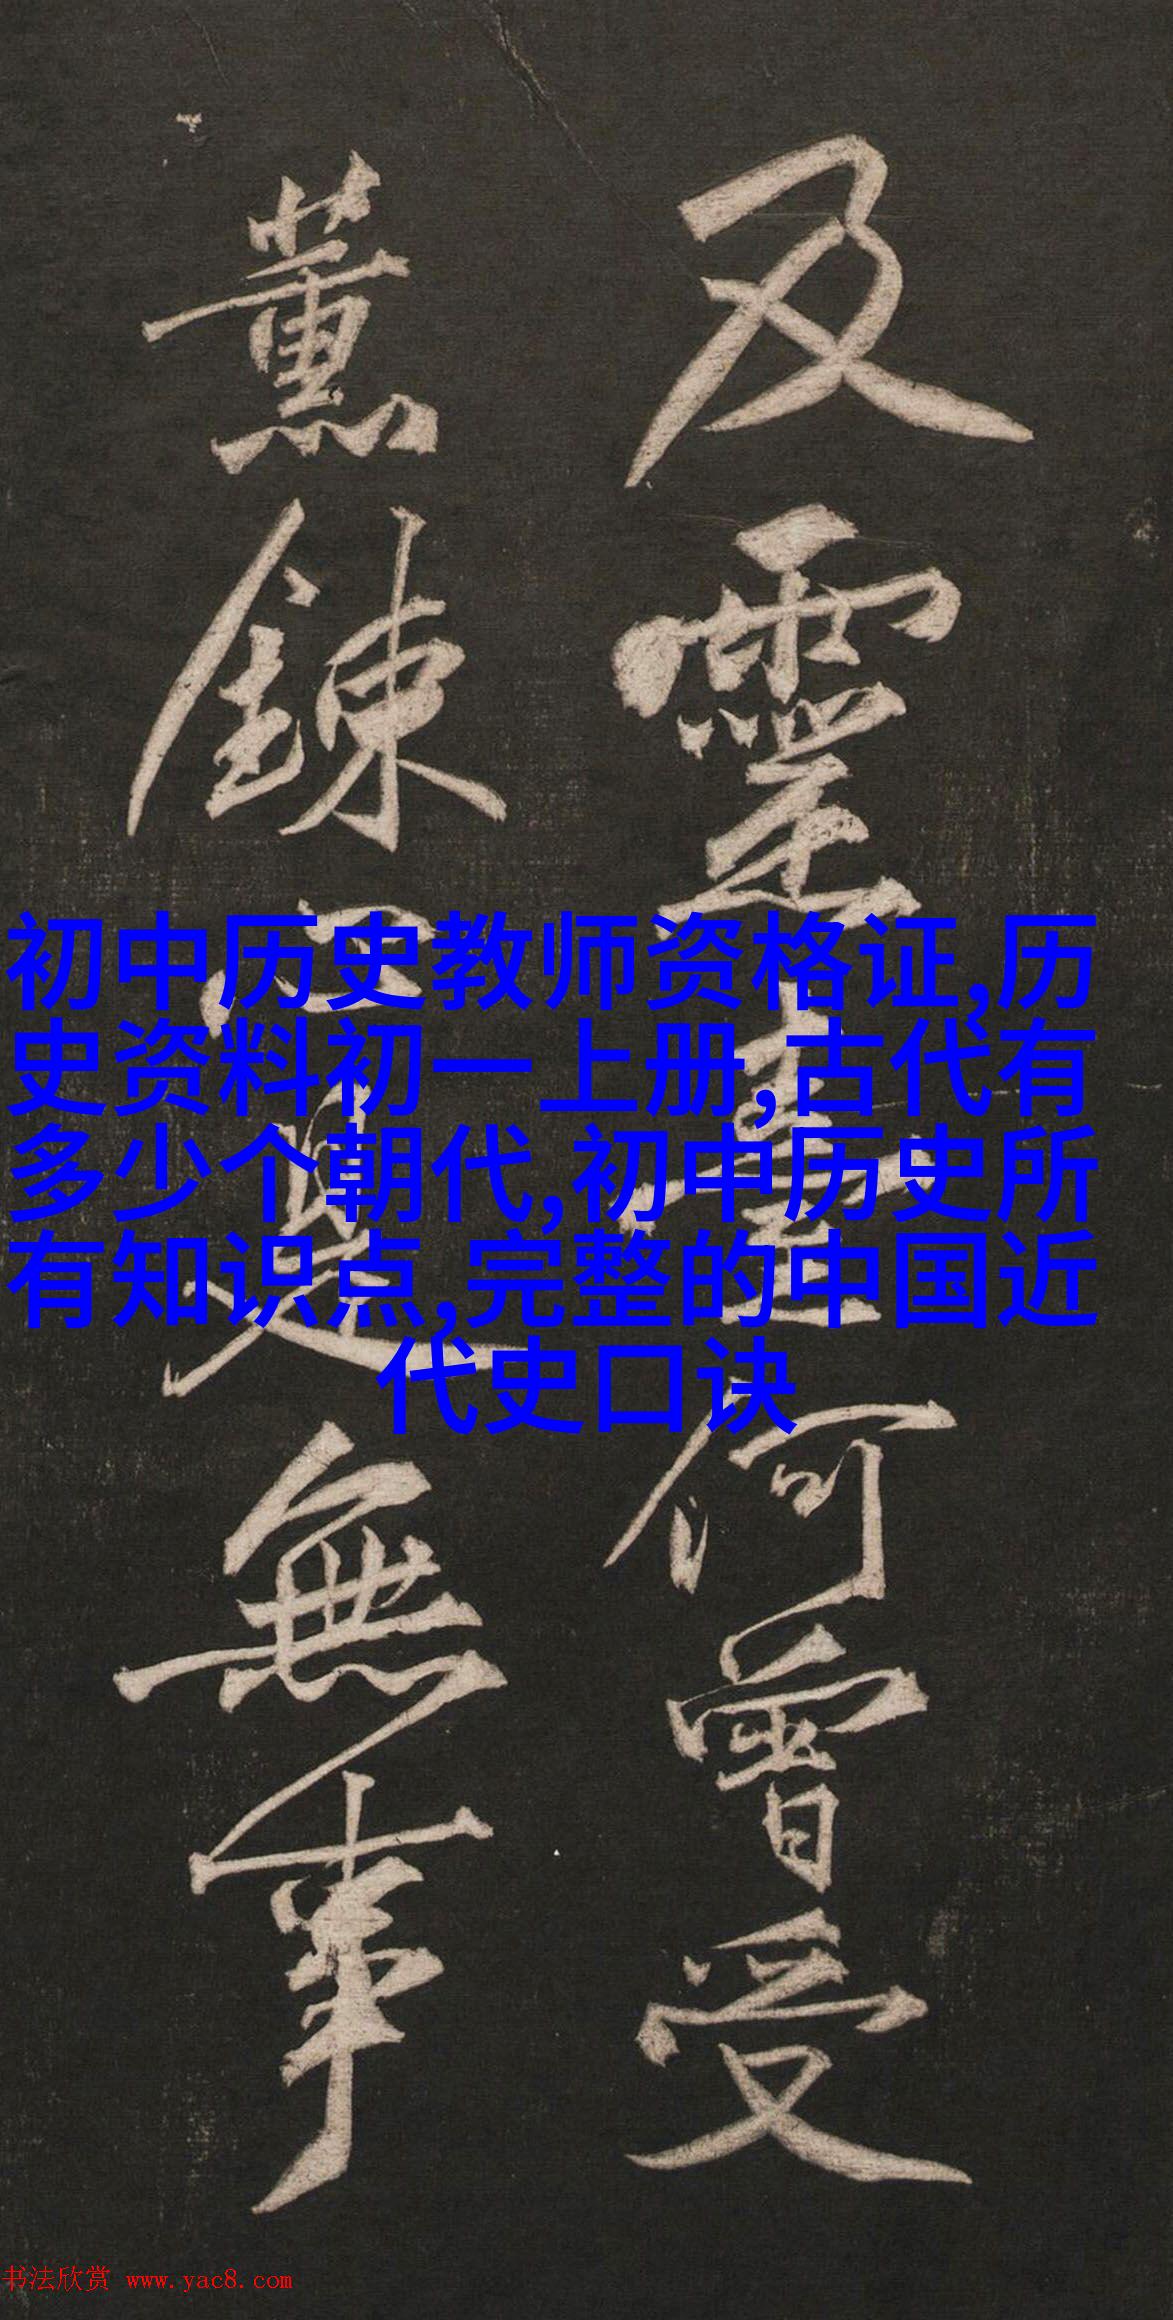 及靈臺何曾受
薰鍊是無事
初中历史教师资格证,历
史资料初一上册,古代有
多少个朝代,初中历史所
有知识点,完整的中国近
代史口诀
书法欣赏 www.yac8.com